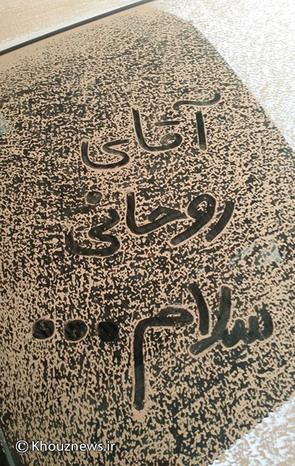 آقای
روحانی
سلام...
© Khouznews.ir